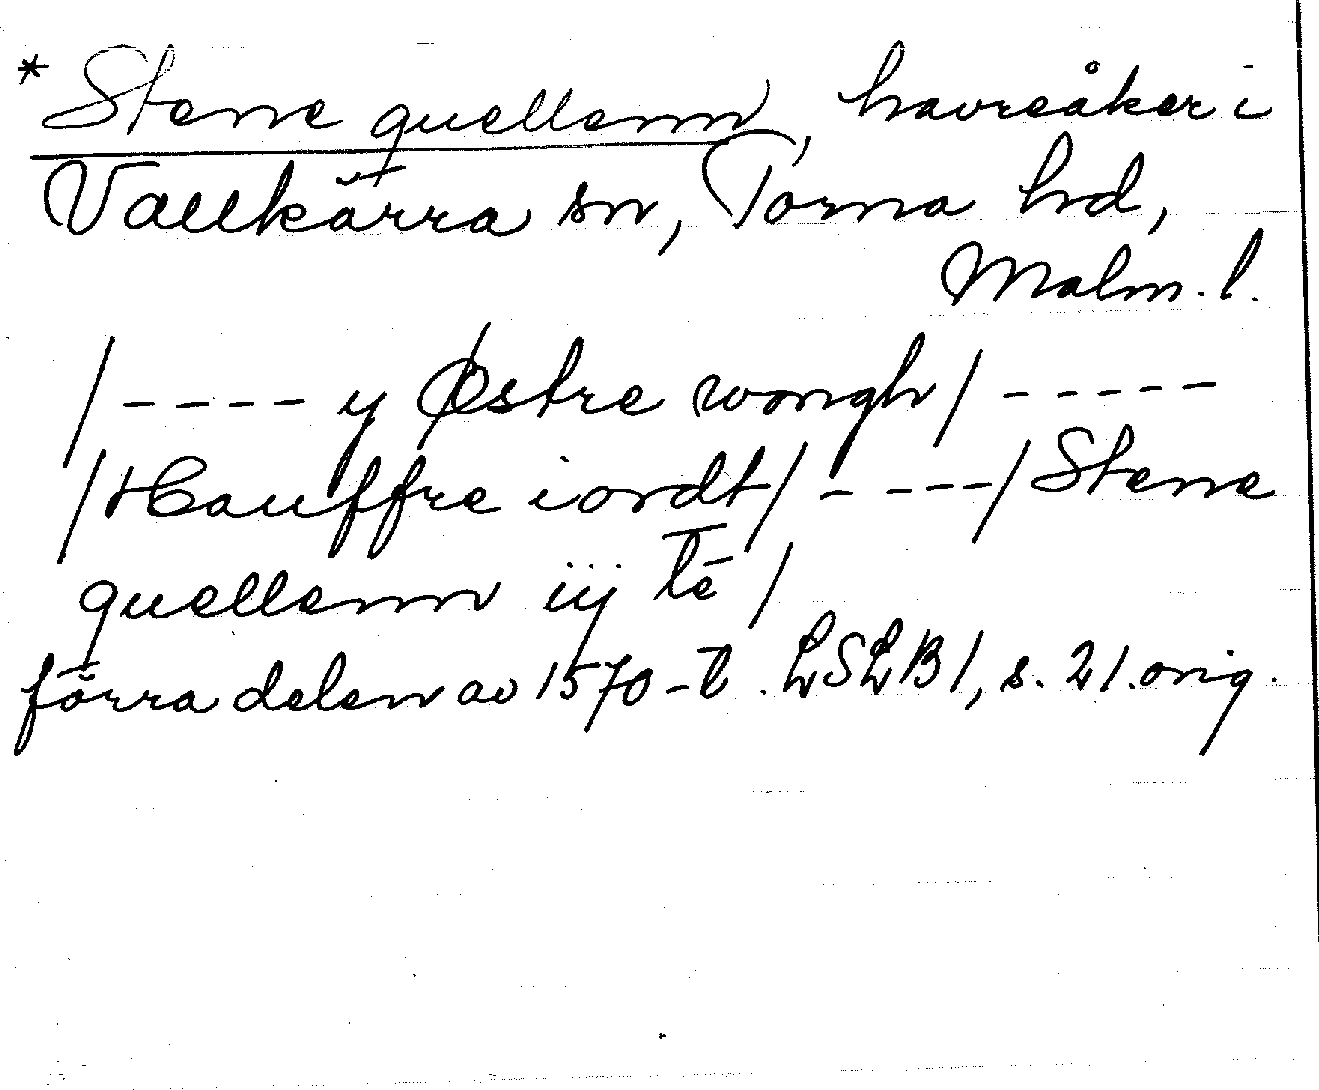 * Stene quellenn, havreåker i
Vallkärra sn, Torna hd,
Malm. l.
/---- y Østre wongh/-----
/Hauffre iordt/-----/Stene
quellenn iij te /
förra delen av 1570-t. LSLB1, s. 21. orig.